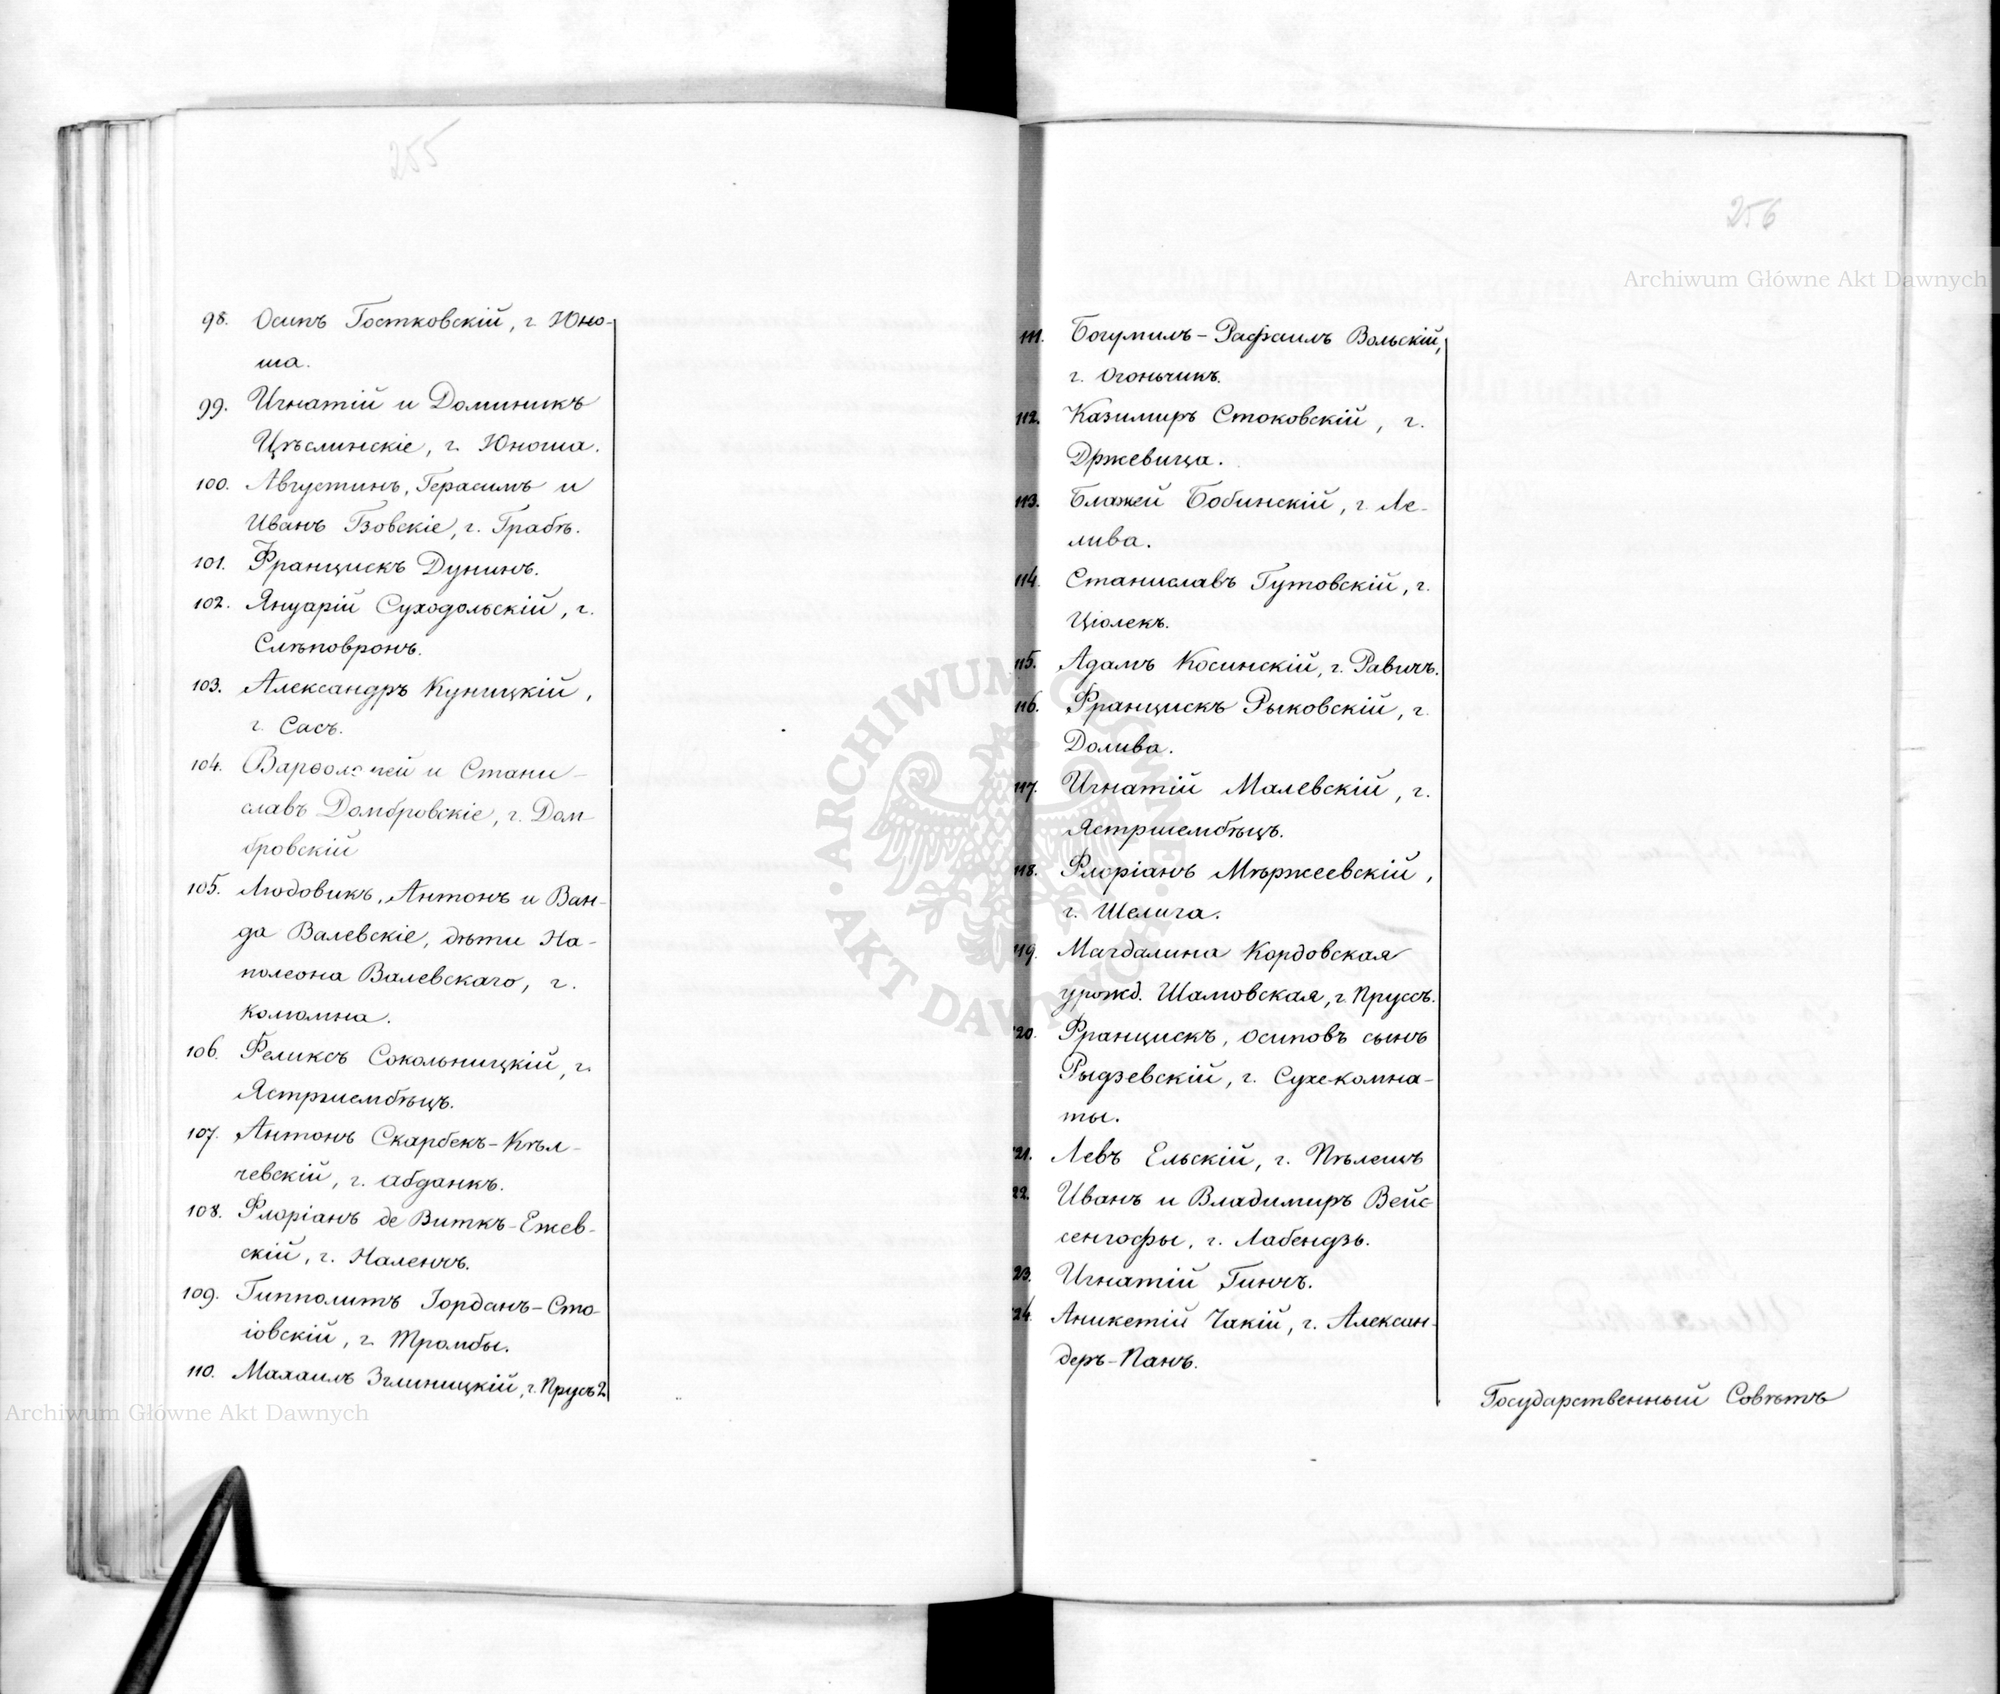 255
98. Осипъ Гостковскій, г. Юно-
ша.
99. Игнатій и Доминикъ
Цѣслинскіе, г. Юноша.
100. Августинъ, Герасимъ и
Иванъ Гзовскіе, г. Грабѣ.
101. Францискъ Дунинъ.
102. Януарій Суходольскій, г.
Слѣповронъ.
103. Александръ Куницкій,
г. Сасъ.
104. Варѳоломей и Стани-
славъ Домбровскіе, г. Дом
бровскій
105. Людовикъ, Антонъ и Ван-
да Валевскіе, дѣти На-
полеона Валевскаго, г.
Коломна.
106. Феликсъ Сокольницкій, г.
Ястршембѣцъ.
107. Антонъ Скарбекъ-Кѣл-
чевскій, г. Абданкъ.
108. Флоріанъ де Виткъ-Ежев-
скій, г. Наленчъ.
109. Гипполитъ Іорданъ-Сто-
іовскій, г. Тромбы.
110. Михаилъ Зглиницкій, г. Прусъ 2
256
111. Богумилъ-Рафаилъ Вольскій,
г. Огоньчикъ.
112. Казимиръ Стоковскій, г.
Држевица.
113. Блажей Бобинскій, г. Ле-
лива.
114. Станиславъ Гутовскій, г.
Ціолекъ.
115. Адамъ Косинскій, г. Равичъ.
116. Францискъ Рыковскій, г.
Долива.
117. Игнатій Малевскій, г.
Ястршембѣцъ.
118. Флоріанъ Мѣржеевскій,
г. Шелига.
119. Магдалина Кордовская
урожд. Шамовская, г. Пруссъ.
120. Францискъ, Осиповъ сынъ
Рыдзевскій, г. Сухекомна-
ты.
121. Левъ Ельскій, г. Пѣлешъ
122. Иванъ и Владимиръ Вейс
сенгофы, г. Лабендзь.
123. Игнатій Гинчъ.
124. Аникетій Чакій, г. Алексан-
деръ-Панъ.
Государственный Совѣтъ
Archiwum Główne Akt Dawnych
Archiwum Główne Akt Dawnych
ARCHIWUM GŁÓWNE AKT DAWNYCH